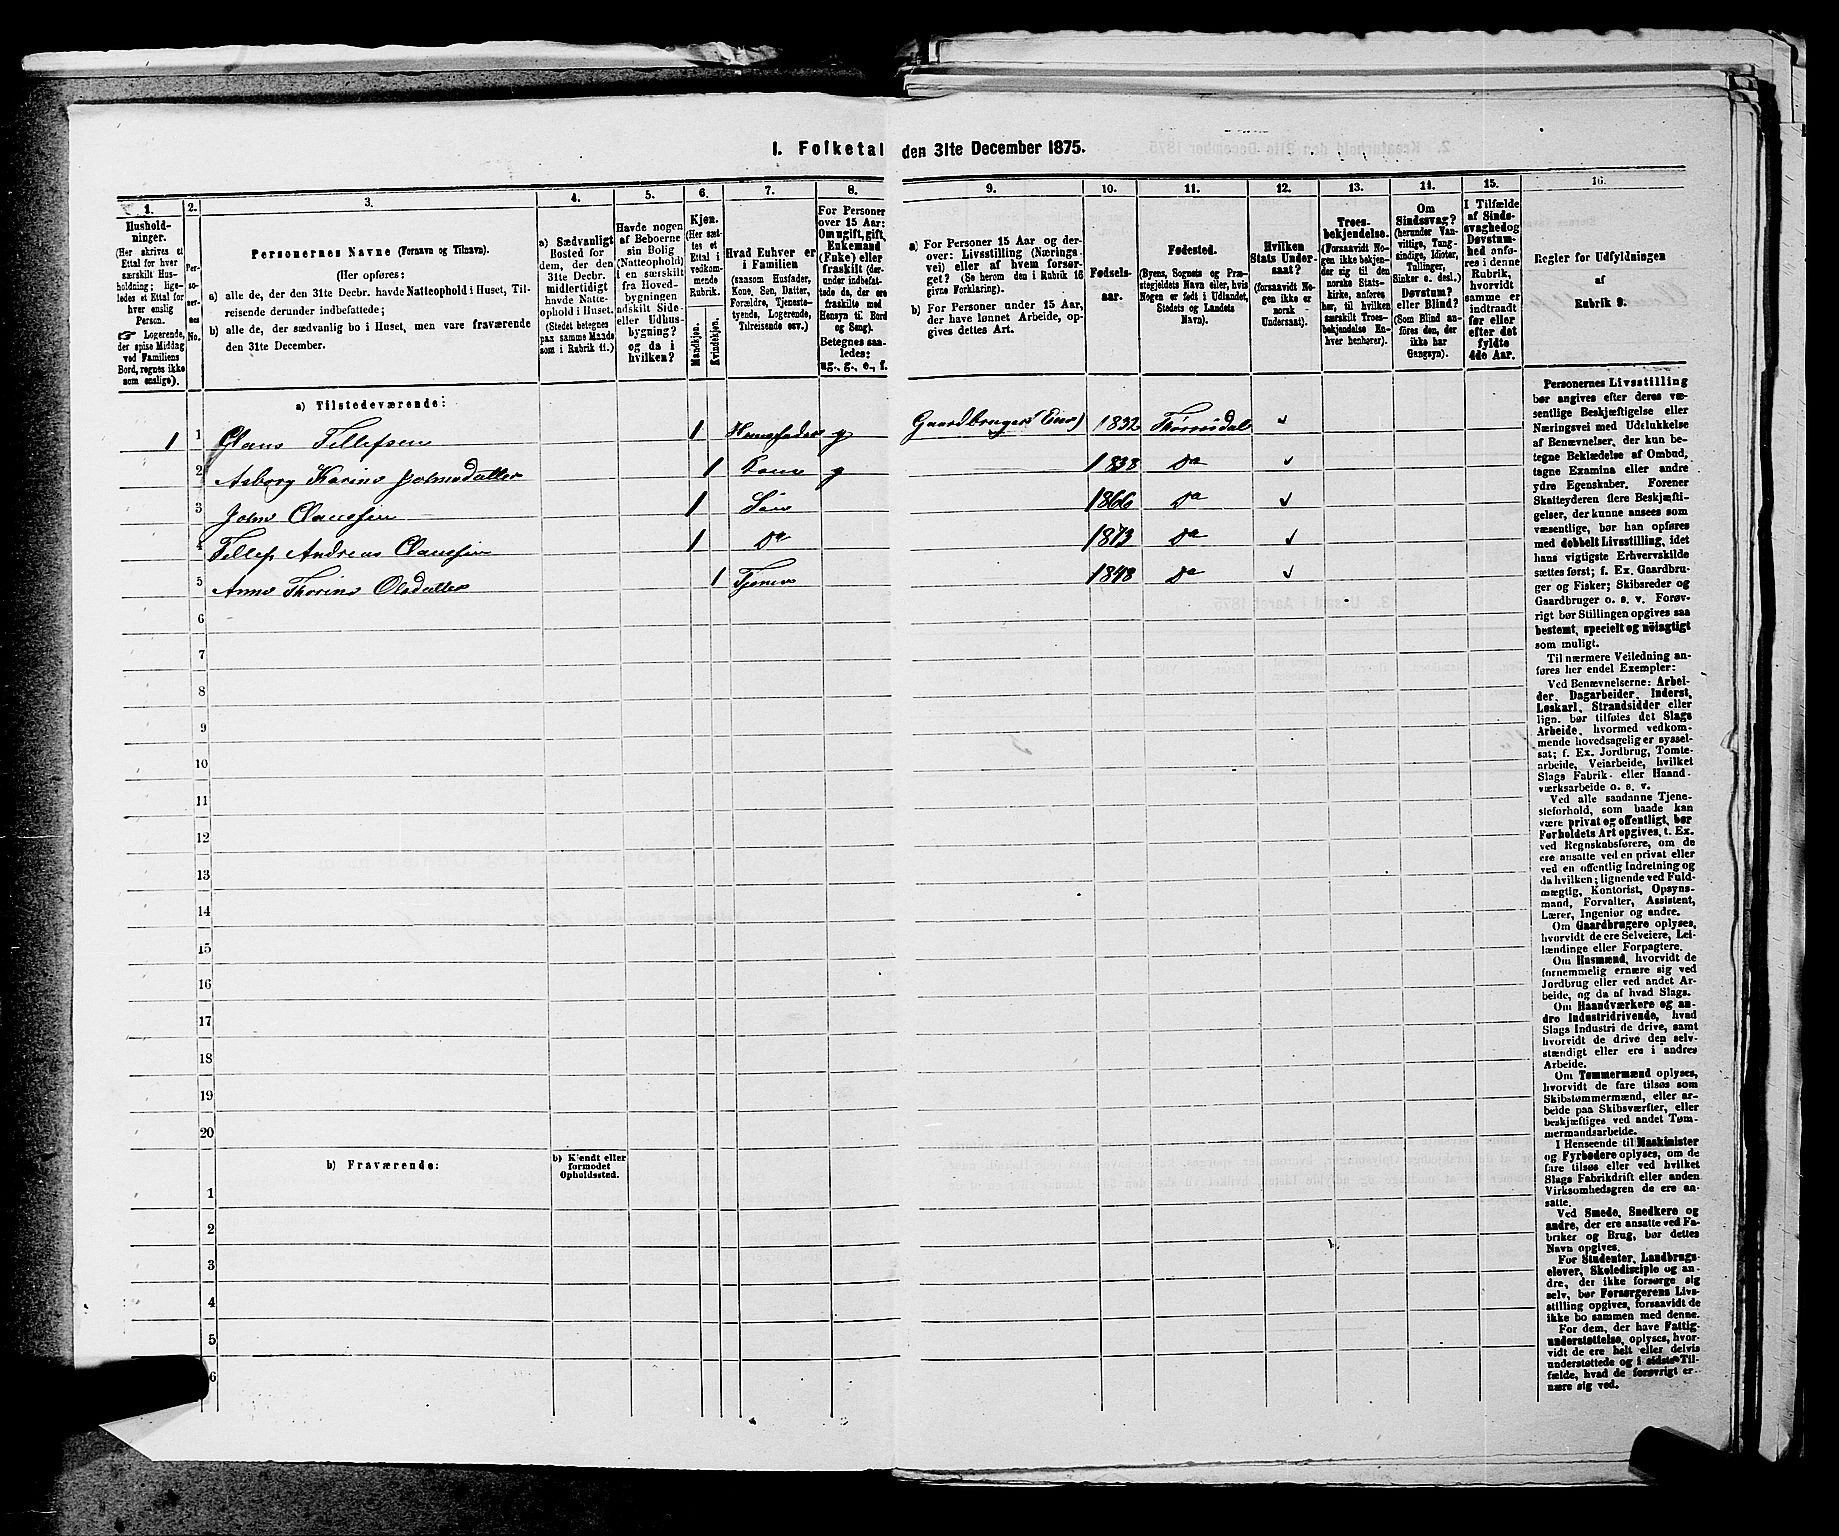 I. Folketal den 31te December 1875.
1.
2.
3.
4.
5.
6.
7.
8.
9.
10.
11.
12.
13.
14.
15.
16.
Husholdninger.
(Her skrives et Ettal for hver særskilt Husholdning; ligeledes et Ettal for hver enslig Person.
☞ Logerende, der spise Middag ved Familiens Bord, regnes ikke som enslige).
Personernes No.
Personernes Navne (Fornavn og Tilnavn).
(Her opføres:
a) alle de, der den 31te Decbr. havde Natteophold i Huset, Tilreisende derunder indbefattede;
b) alle de, der sædvanlig bo i Huset, men vare fraværende den 31te December.
a) Sædvanligt Bosted for dem, der den 31te Decbr. midlertidigt havde Natteophold i Huset. (Stedet betegnes paa samme Maade som i Rubrik 11.)
Havde nogen af Beboerne sin Bolig (Natteophold) i en særskilt fra Hovedbygningen adskilt Side- eller Udhusbygning? og da i hvilken?
Kjøn. (Her sættes et Ettal i vedkommende Rubrik.
Mandkjøn.
Kvindekjøn.
Hvad Enhver er i Familien
(saasom Husfader, Kone, Søn, Datter, Forældre, Tjenestetyende, Logerende, Tilreisende osv.)
For Personer over 15 Aar: Om ugift, gift, Enkemand (Enke) eller fraskilt (derunder indbefattede de, der ere fraskilte med Hensyn til Bord og Seng). Betegnes saaledes: ug., g., e., f.
a) For Personer 15 Aar og derover: Livsstilling (Næringsvei) eller af hvem forsørget? (Se herom den i Rubrik 16 givne Forklaring).
b) For Personer under 15 Aar, der have lønnet Arbeide, opgives dettes Art.
Fødselsaar.
Fødested.
(Byens, Sognets og Præstegjeldets Navn eller, hvis Nogen er født i Udlandet, Stedets og Landets Navn).
Hvilken Stats Undersaat?
(forsaavidt Nogen ikke er norsk Undersaat).
Troesbekjendelse.
(Forsaavidt Nogen ikke bekjender sig til den norske Statskirke, anføres her, til hvilken særskilt Troesbekjendelse Enhver henhører).
Om Sindssvag? (herunder Vanvittige, Tungsindige, Idioter, Tullinger, Sinker o. desl.). Døvstum? eller Blind? (Som Blind anføres den, der ikke har Gangsyn).
I Tilfælde af Sindssvaghed og Døvstumhed anføres i denne Rubrik, hvorvidt samme er indtraadt før eller efter det fyldte 4de Aar.
Regler for Udfyldningen af Rubrik 9.
a) Tilstedeværende:
1 1 Claus Tellefsen 1 Huusfader g Gaardbruger (Eier) 1832 Thörrisdal
2 Asborg Karine Johnsdatter 1 Kone g 1838 Do
3 John Claussen 1 Søn 1866 Do
4 Tellef Andreas Claussen 1 Do 1873 Do
5 Anne Thorine Olsdatter 1 Tjener 1848 Do
6
7
8
9
10
11
12
13
14
15
16
17
18
19
20
b) Fraværende:
b) Kjendt eller formodet Opholdssted.
1
2
3
4
5
6
Personernes Livsstilling
bør angives efter deres væ-
sentlige Beskjæftigelse eller
Næringsvei med Udelukkelse
af Benævnelser, der kun be-
tegne Beklædelse af Ombud,
tagne Examina eller andre
ydre Egenskaber. Forener
Skatteyderen flere Beskjæfti-
gelser, der kunne ansees som
væsentlige, bør han opføres
med dobbelt Livsstilling, idet
hans vigtigste Erhvervskilde
sættes først; f. Ex. Gaardbru-
ger og Fisker; Skibsreder og
Gaardbruger o. s. v. Forøv-
rigt bør Stillingen opgives saa
bestemt, specielt og nöiagtigt
som muligt.
Til nærmere Veiledning an-
føres her endel Exempler:
Ved Benævnelserne: Arbei-
der, Dagarbeider, Inderst,
Løskarl, Strandsidder eller
lign. bør tilføies det Slags
Arbeide, hvormed vedkom-
mende hovedsagelig er syssel-
sat; f. Ex. Jordbrug, Tomte-
arbeide, Veiarbeide, hvilket
Slags Fabrik- eller Haand-
værksarbeide o. s. v.
Ved alle saadanne Tjene-
steforhold, som baade kan
være privat og offentligt, bør
Forholdets Art opgives, t. Ex.
ved Regnskabsførere, om de
ere ansatte ved en privat eller
ved en offentlig Indretning og
da hvilken; lignende ved Fuld-
mægtig, Kontorist, Opsyns-
mand, Forvalter, Assistent,
Lærer, Ingeniør og andre.
Om Gaardbrugere oplyses,
hvorvidt de ere Selveiere, Lei-
lændinge eller Forpagtere.
Om Husmænd, hvorvidt de
fornemmelig ernære sig ved
Jordbrug eller ved andet Ar-
beide, og da af hvad Slags.
Om Haandværkere og an-
dre Industridrivende, hvad
Slags Industri de drive, samt
hvorvidt de drive den selv-
stændigt eller ere i andres
Arbeide.
Om Tømmermænd oplyses,
hvorvidt de fare tilsøs som
Skibstømmermænd, eller ar-
beide paa Skibsværfter, eller
beskjæftiges ved andet Tøm-
mermandsarbeide.
I Henseende til Maskinister
og Fyrbødere oplyses, om de
fare tilsøs eller ved hvilket
Slags Fabrikdrift eller anden
Virksomhedsgren de ere an-
satte.
Ved Smede, Snedkere og
andre, der ere ansatte ved Fa-
briker og Brug, bør dettes
Navn opgives.
For Studenter, Landbrugs-
elever, Skoledisciple og an-
dre, der ikke forsørge sig
selv, bør Forsørgerens Livs-
stilling opgives, forsaavidt de
ikke bo sammen med denne.
For dem, der have Fattig-
understøttelse, oplyses, hvor-
vidt de ere helt eller delvis
understøttede og i sidste Til-
fælde, hvad de forøvrigt er-
nære sig ved.